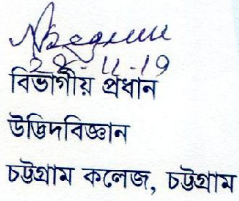 28-11-19
বিভাগীয় প্রধান
উদ্ভিদবিজ্ঞান
চট্টগ্রাম কলেজ, চট্টগ্রাম